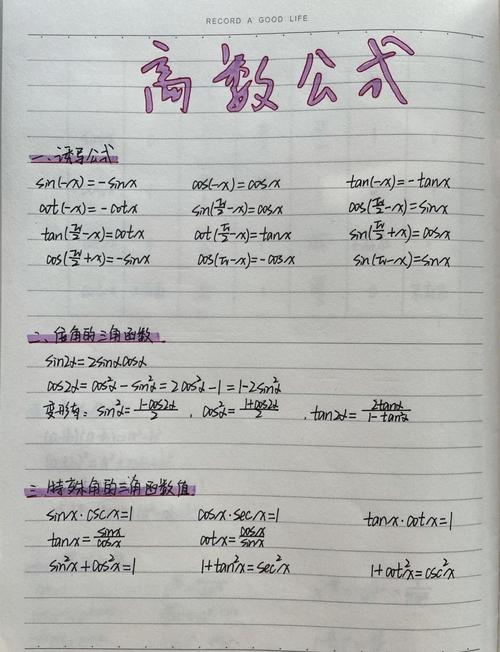 RECORD A GOOD LIFE
高数公式
一、诱导公式
sin(-x)=-sinx cos(-x)=cosx tan(-x)=-tanx
cot(-x)=-cotx sin(π/2-x)=cosx cos(π/2-x)=sinx
tan(π/2-x)=cotx cot(π/2-x)=tanx sin(π/2+x)=cosx
cos(π/2+x)=-sinx cos(π-x)=-cosx sin(π-x)=sinx
二、倍角的三角函数
sin2α=2sinαcosα
cos2α=cos²α-sin²α=2cos²α-1=1-2sin²α
变形有：sin²α=(1-cos2α)/2，cos²α=(1+cos2α)/2，tan2α=2tanα/(1-tan²α)
三、特殊角的三角函数值
sinx·cscx=1 cosx·secx=1 tanx·cotx=1
tanx=sinx/cosx cotx=cosx/sinx
sin²x+cos²x=1 1+tan²x=sec²x 1+cot²x=csc²x